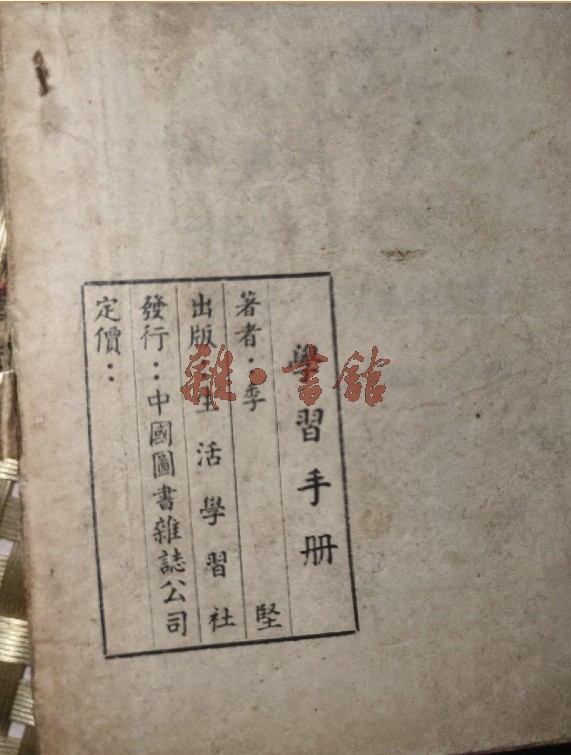 學習手册
著者：李堅
出版：生活學習社
發行：中國圖書雜誌公司
定價：
雜·書館